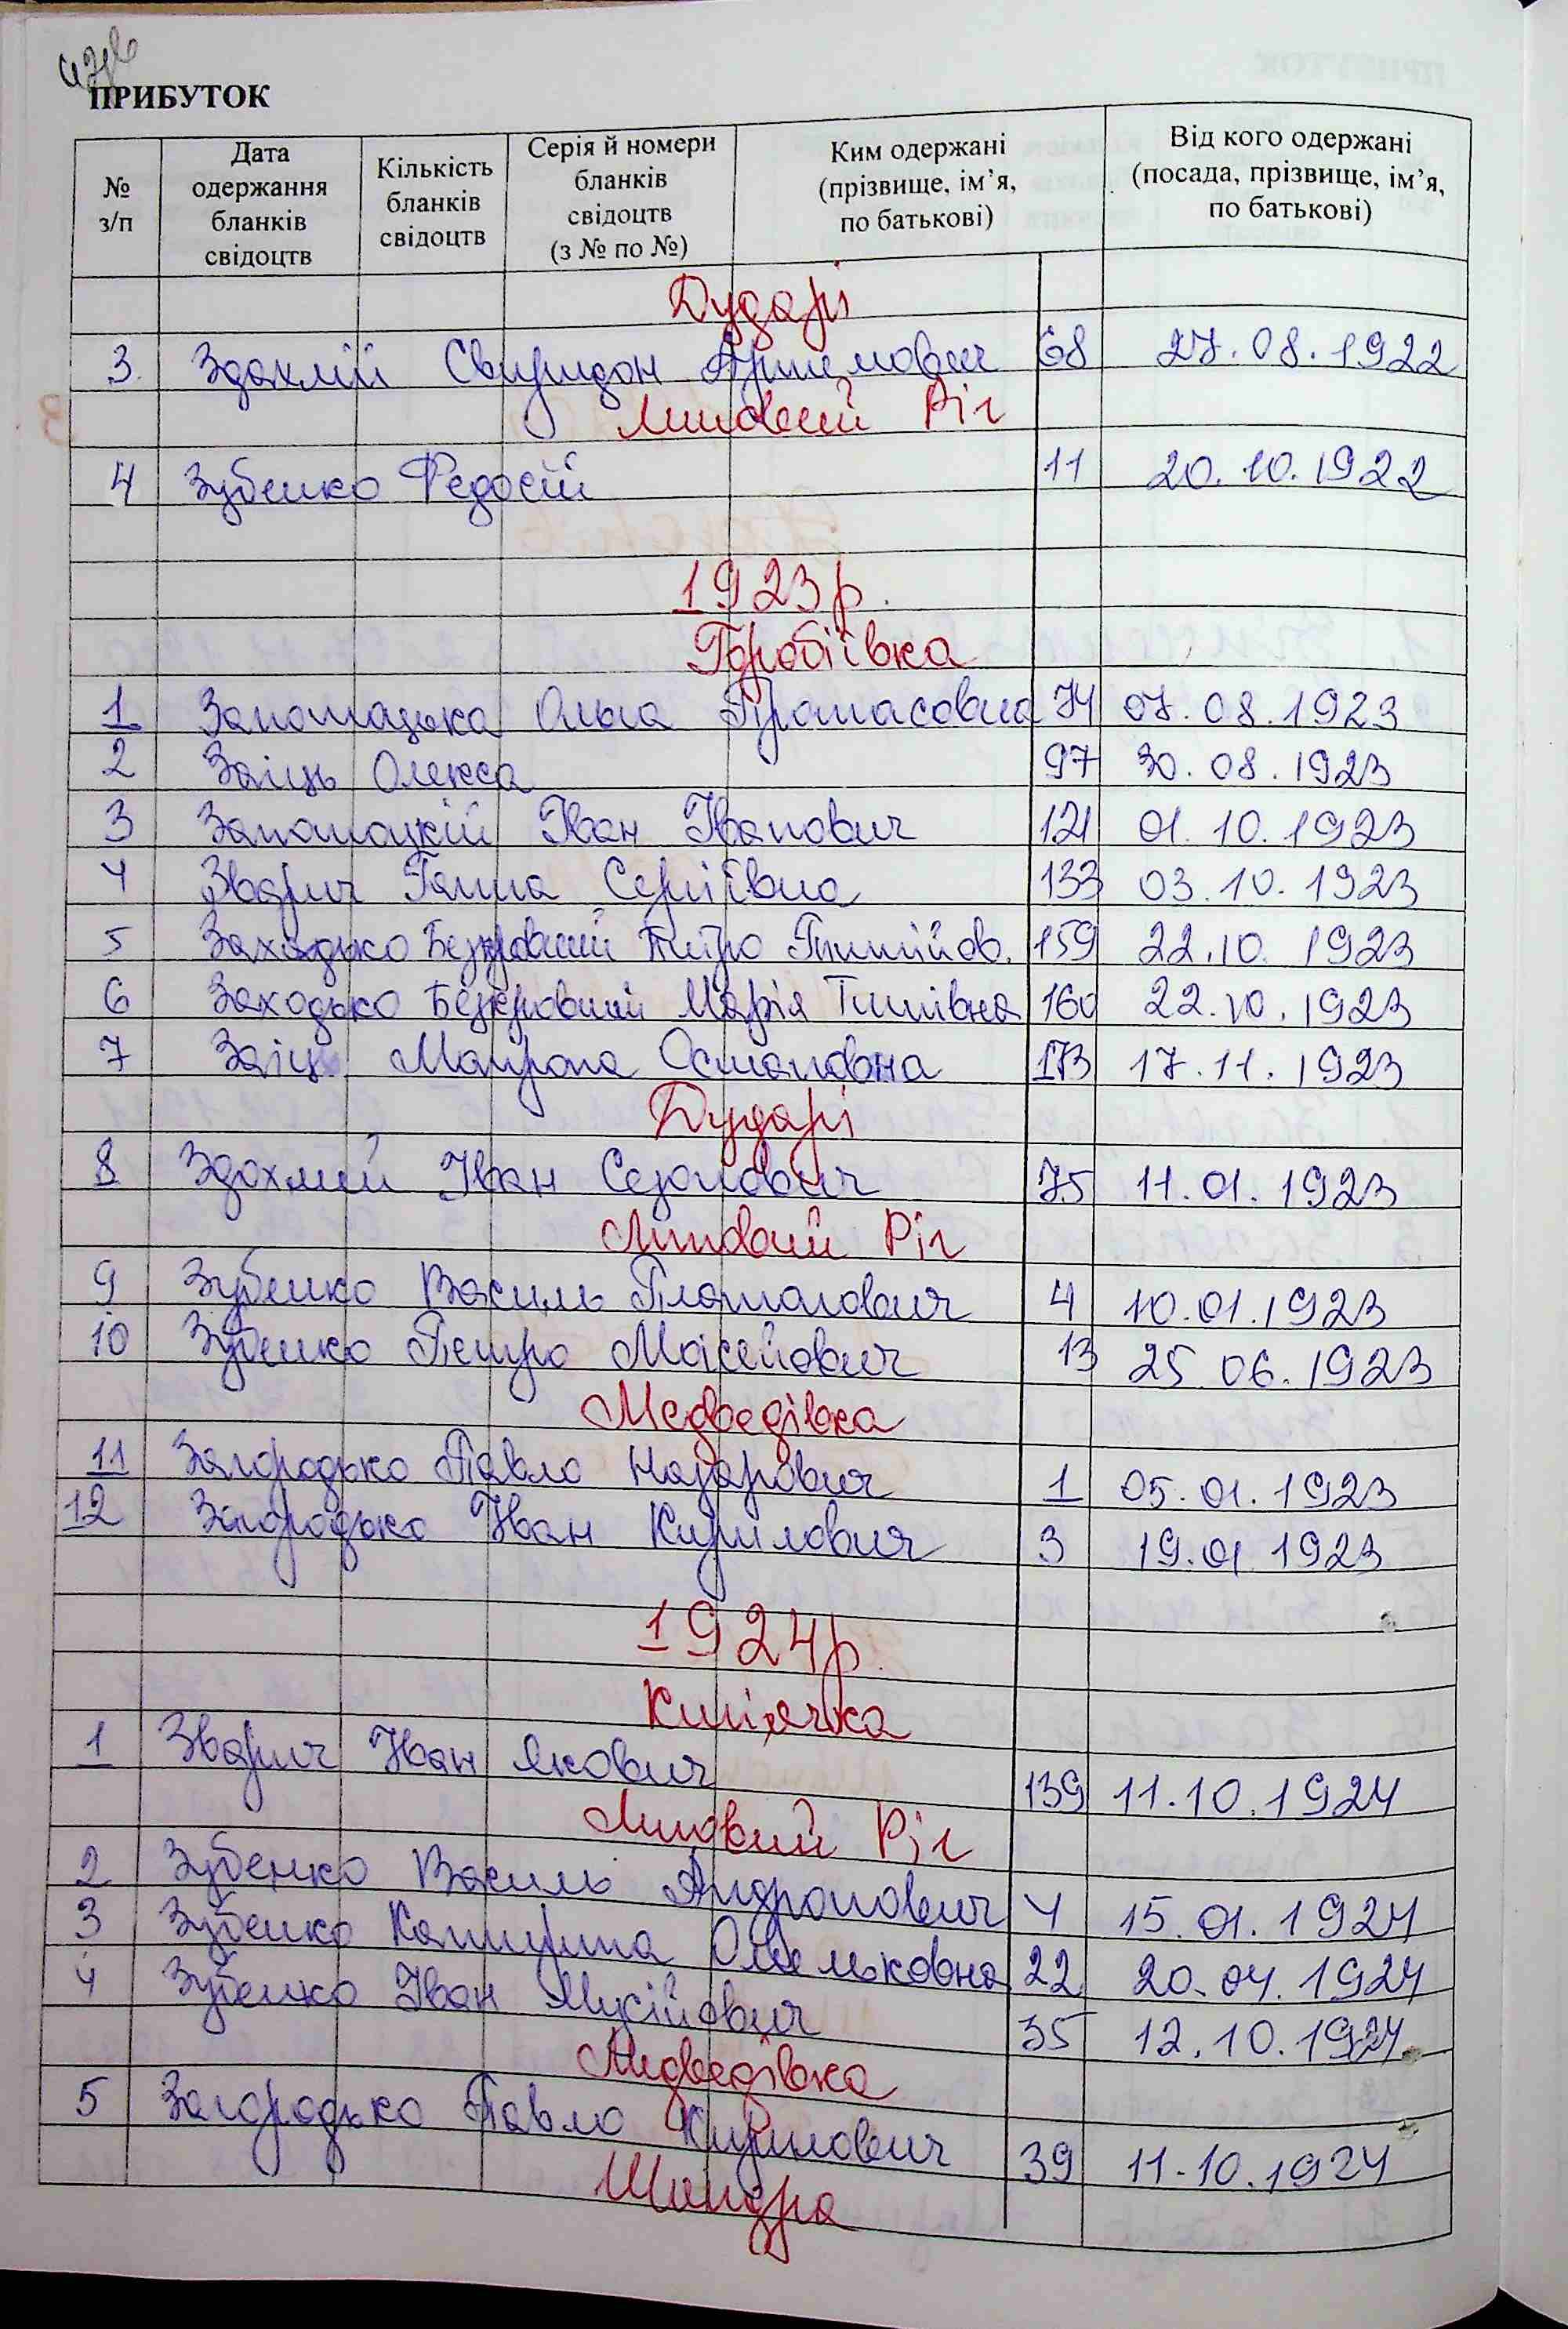 ПРИБУТОК
№ з/п
Дата одержання бланків свідоцтв
Кількість бланків свідоцтв
Серія й номери бланків свідоцтв (з № по №)
Ким одержані (прізвище, ім’я, по батькові)
Від кого одержані (посада, прізвище, ім’я, по батькові)
Дударі
3. Здохлій Свиридон Артемович 68 27.08.1922
Липовий Ріг
4 Зубенко Федосій 11 20.10.1922
1923р.
Горобіївка
1 Запотацька Ольга Протасовна 74 07.08.1923
2 Заіць Олекса 97 30.08.1923
3 Запотоцкій Іван Іванович 121 01.10.1923
4 Зварич Ганна Сергіївна 133 03.10.1923
5 Заходько Петро 159 22.10.1923
6 Заходько Марія Тимівна 160 22.10.1923
7 Заіць Мотрона Остаповна 173 17.11.1923
Дударі
8 Здохлий Іван Созонович 75 11.01.1923
Липовий Ріг
9 Зубенко Василь Платонович 4 10.01.1923
10 Зубенко Петро Мойсейович 13 25.06.1923
Медведівка
11 Загородько Павло Назарович 1 05.01.1923
12 Загородько Іван Кирилович 3 19.01.1923
1924р.
Кип'ячка
1 Зварич Іван Якович 139 11.10.1924
Липовий Ріг
2 Зубенко Василь Андронович 4 15.01.1924
3 Зубенко Катирина Омельковна 22 20.04.1924
4 Зубенко Іван Мусійович 35 12.10.1924
Медведівка
5 Загородько Павло Кирилович 39 11.10.1924
Шандра